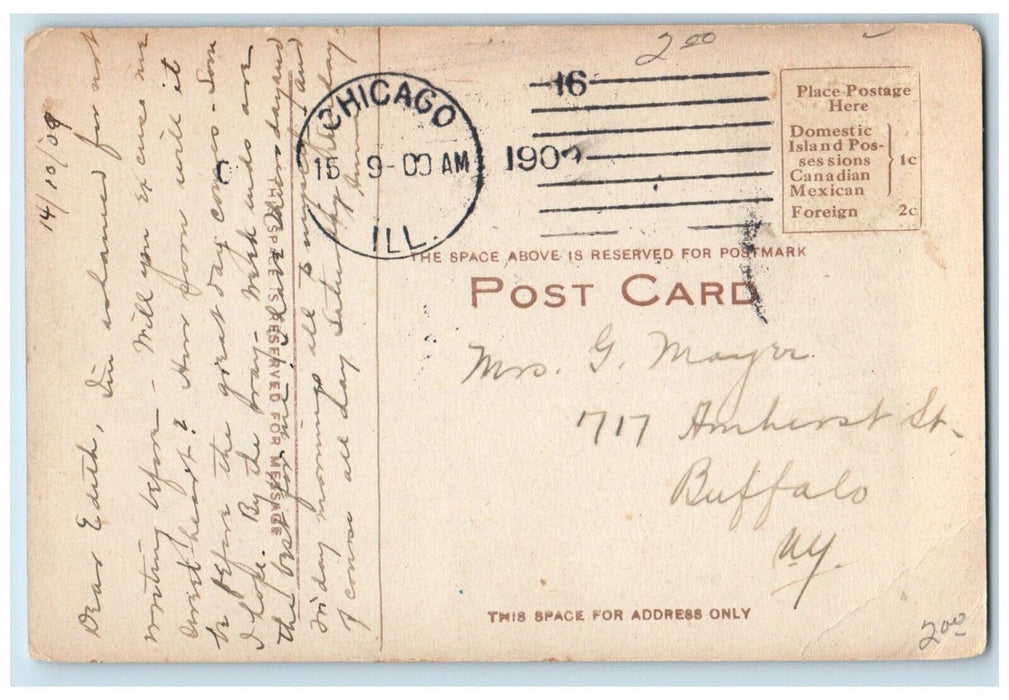 14/10/09
Dear Edith, I'm ashamed for not
writing before - Will you excuse me
sweet heart? How soon will it
be before the great day comes - Soon
I hope. By the way - Week ends are
the best for me. I have Thursday and
Friday mornings all to myself and
of course all day Saturday & Sunday
THIS SPACE IS RESERVED FOR MESSAGE
2 00
CHICAGO
15 9-00 AM
ILL.
16
1909
Place Postage
Here
Domestic
Island Pos-
sessions
Canadian
Mexican
1c
Foreign 2c
THE SPACE ABOVE IS RESERVED FOR POSTMARK
POST CARD
Mrs. G. Mayer
717 Amherst St.
Buffalo
N.Y.
THIS SPACE FOR ADDRESS ONLY
2 00